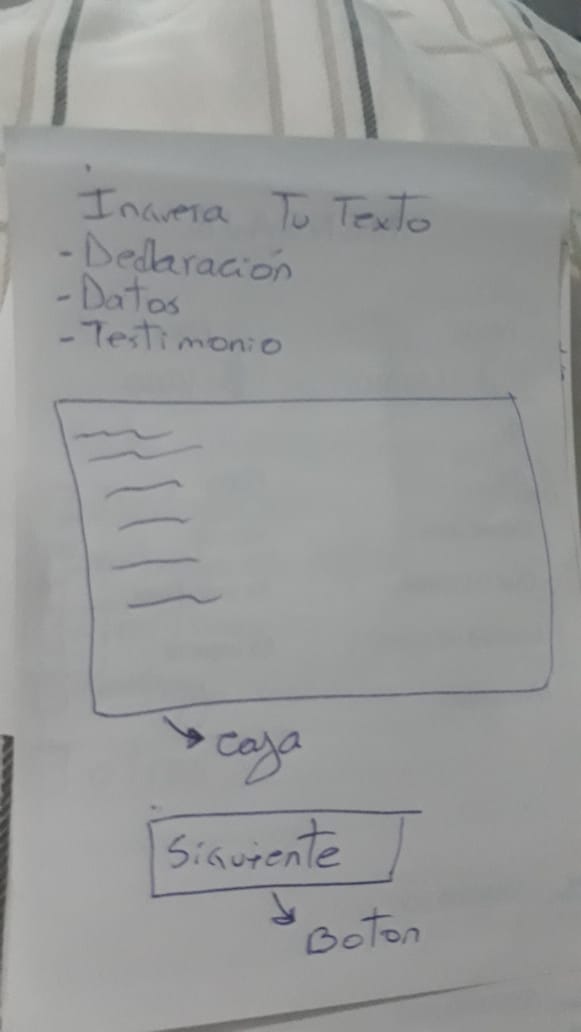 Inavesa Tu Texto
- Declaración
- Datos
- Testimonio
caja
Siguiente
Boton